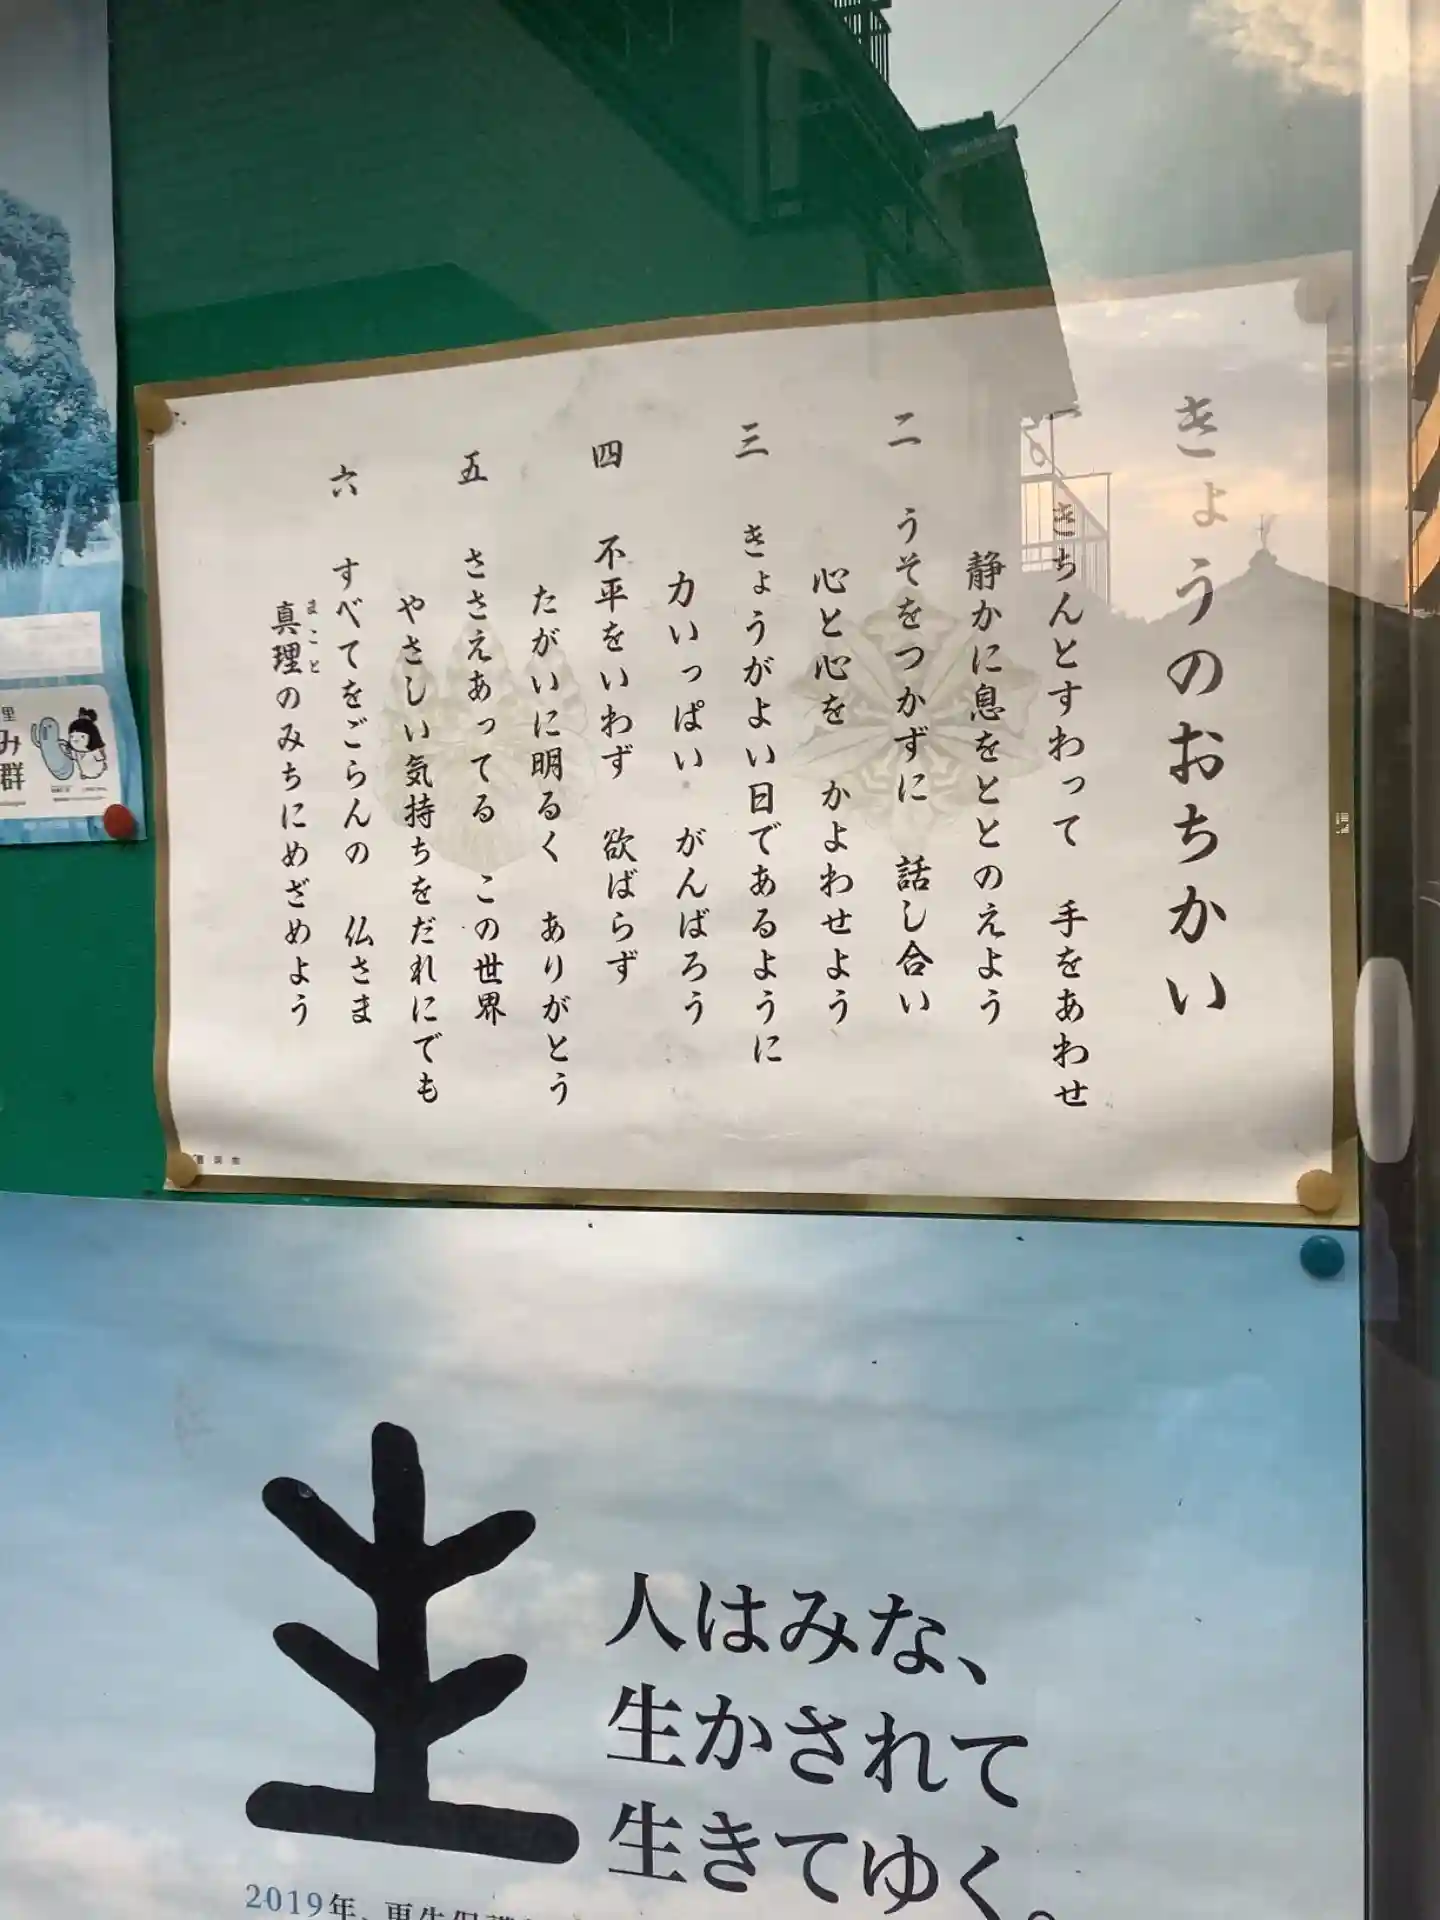 きょうのおちかい
一 きちんとすわって 手をあわせ
静かに息をととのえよう
二 うそをつかずに 話し合い
心と心を かよわせよう
三 きょうがよい日であるように
力いっぱい がんばろう
四 不平をいわず 欲ばらず
たがいに明るく ありがとう
五 ささえあってる この世界
やさしい気持ちをだれにでも
六 すべてをごらんの 仏さま
真理のみちにめざめよう
まこと
里
み
群
人はみな、
生かされて
生きてゆく。
2019年、更生保護